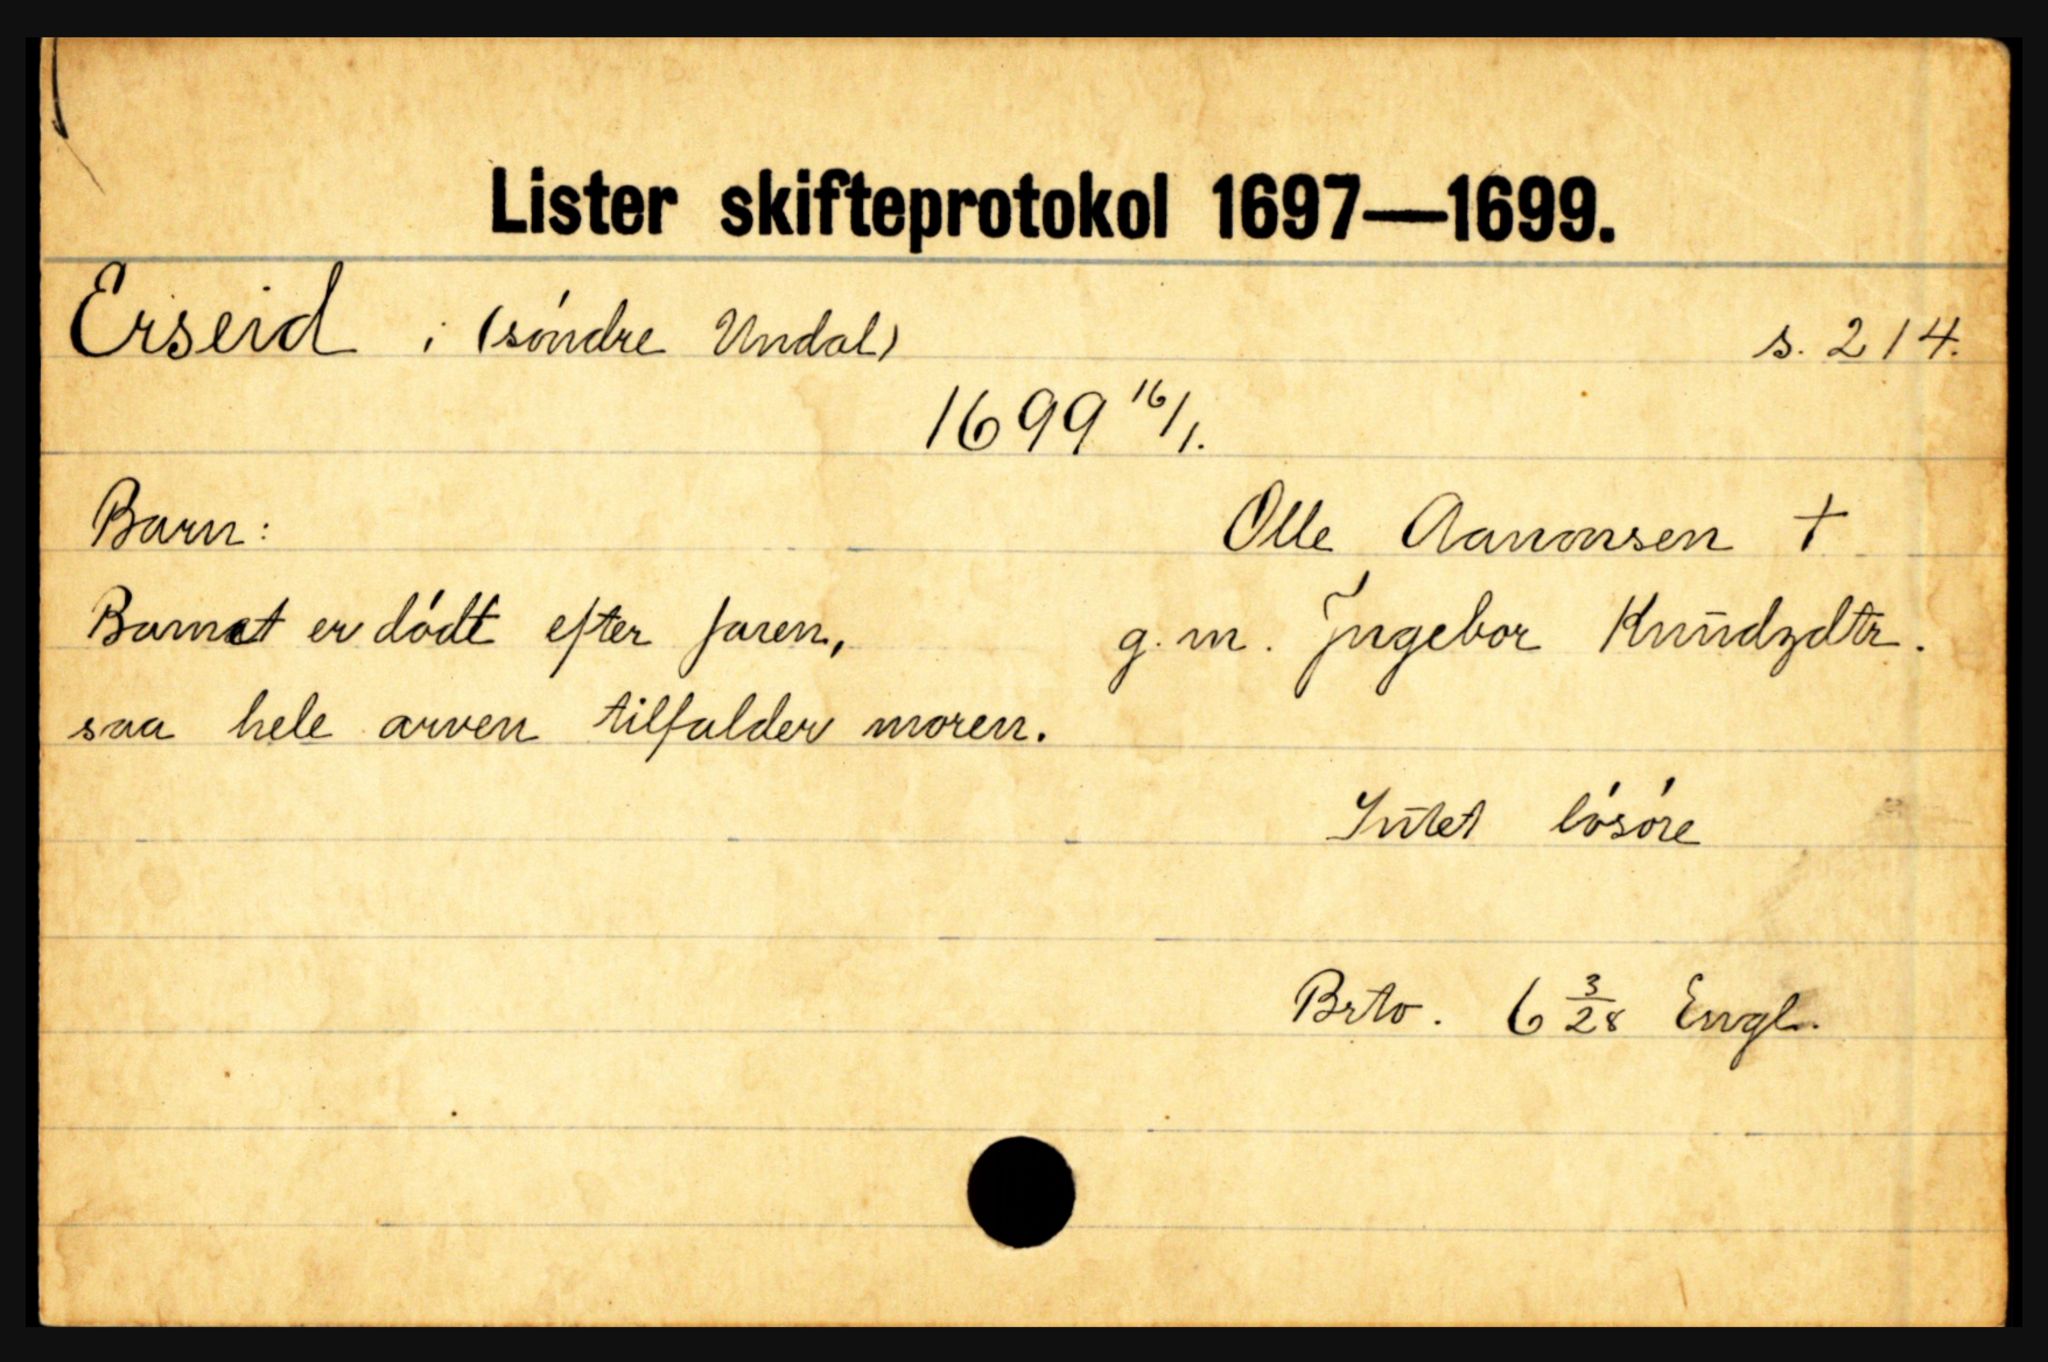 Lister skifteprotokol 1697—1699.
Erseid i (söndre Undal) s. 214.
1699 16/1.
Barn: Olle Aanonsen †
Barnet er dödt efter faren, g. m. Jngebor Knudzdtr.
saa hele arven tilfalder moren.
Intet lösöre
Brto. 6 3/28 Engl.